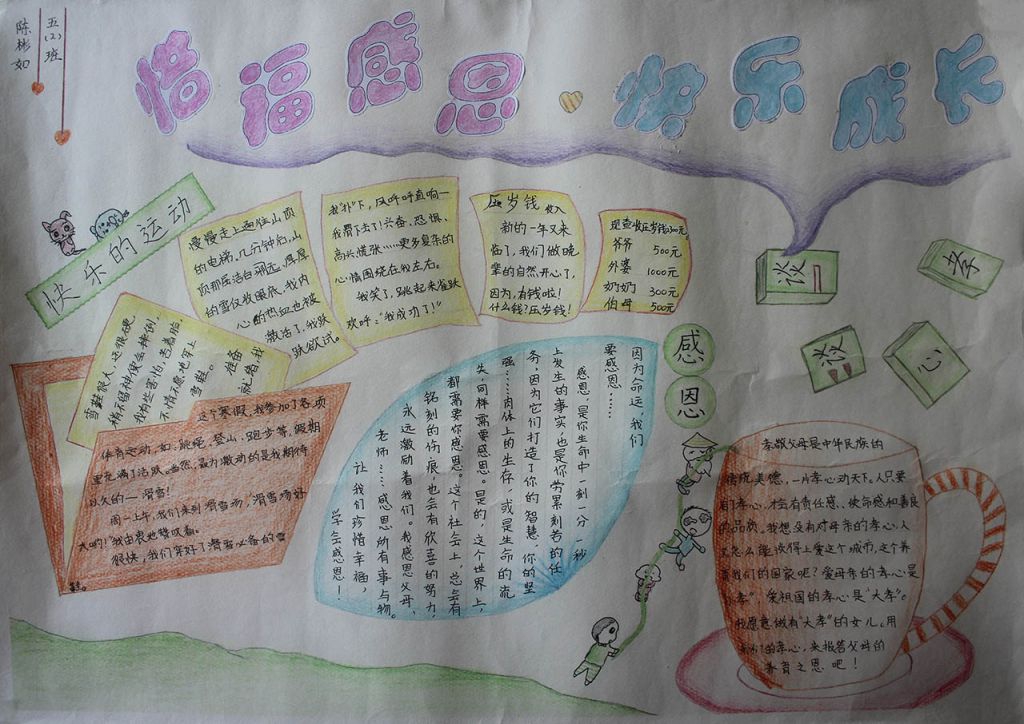 五(2)班
陈彬如
惜福感恩 快乐成长
快乐的运动
这个寒假,我参加了各项
体育运动,如:跳绳、登山、跑步等,假期
里充满了活跃。当然,最为激动的是我期待
以久的一滑雪!
周一上午,我们来到滑雪场,"滑雪场好
大哟!"我由衷地赞叹着。
很快,我们穿好了滑雪必备的雪
当鞋很大,还很硬,
稍不留神便会摔倒,
我有些害怕,迈着脸
不情不愿地穿上
雪鞋。
准备
就绪,我
慢慢走上通往山顶
的电梯,几分钟后,山
顶那层洁白
的雪仅收眼底,我内
心的热血也被
激活了,我跃
跃欲试。
我"扑"下,风呼呼直响一
我滑下去了!兴奋、恐惧、
高兴、慌张……更多复杂的
心情围绕在我左右。
我笑了,跳起来雀跃
欢呼:"我成功了!"
压岁钱收入
新的一年又来
临了,我们做晚
辈的自然开心了,
因为,有钱啦!
什么钱?压岁钱!
现查收压岁钱
爷爷 500元
外婆 1000元
奶奶 300元
伯母 500元
感恩
因为命运,我们
要感恩……
感恩,是你生命中一刻一分一秒
上发生的事实,也是你劳累刻苦的任
务,因为它们打造了你的智慧,你的坚
强……肉体上的生存,或是生命的流
失,同样需要感恩。是的,这个世界上,
都需要你感恩。这个社会上,总会有
铭刻的伤痕,也会有欣喜的努力,
永远激励着我们。我感恩父母、
老师……感恩所有事与物。
让我们珍惜幸福,
学会感恩!
谈一谈孝心
孝敬父母是中华民族的
传统美德,一片孝心动天下。人只要
有了孝心,才会有责任感、使命感和善良
的品质。我想没有对母亲的孝心,人
又怎么能谈得上爱这个城市,这个养
育我们的国家呢?爱母亲的孝心是
"小孝",爱祖国的孝心是"大孝"。
我愿意做有"大孝"的女儿,用
的孝心,来报答父母的
养育之恩吧!